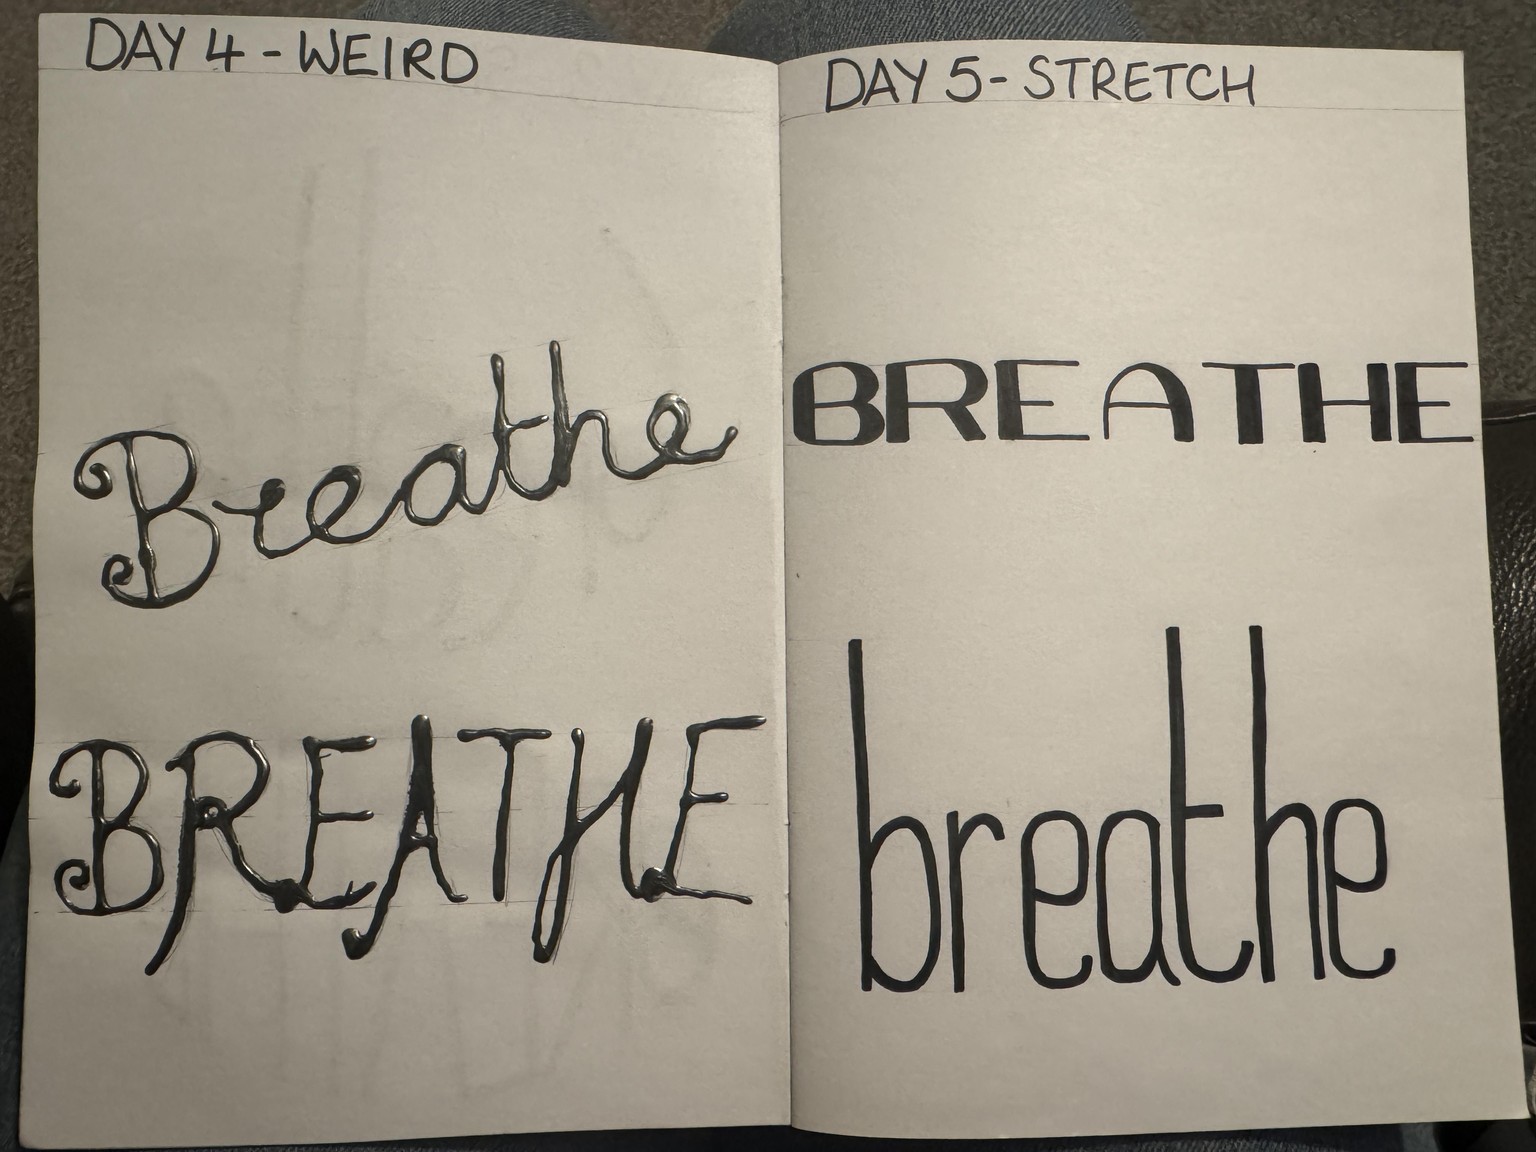 DAY 4 - WEIRD
Breathe
BREATHE
DAY 5 - STRETCH
BREATHE
breathe